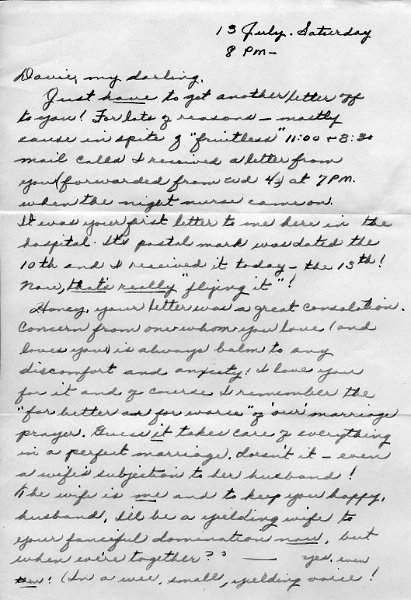 13 July. Saturday
8 PM -
Davie, my darling,
Just have to get another letter off
to you! For lots of reasons - mostly
cause in spite of "fruitless" 11:00 + 3:30
mail calls I received a letter from
you (forwarded from wd 4) at 7 PM.
when the night nurse came on.
It was your first letter to me here in the
hospital. Its postal mark was dated the
10th and I received it today - the 13th!
Now, that's really "flying it"!
Honey, your letter was a great consolation.
Concern from one whom you love (and
loves you) is always balm to any
discomfort and anxiety! I love you
for it and of course I remember the
"for better and for worse" of our marriage
prayer. Guess it takes care of everything
in a perfect marriage, doesn't it - even
a wife's subjection to her husband!
The wife is me and to keep you happy,
husband, I'll be a yielding wife to
your fanciful domination now, but
when we're together?? — yes, even
then! (In a wee, small, yielding voice!